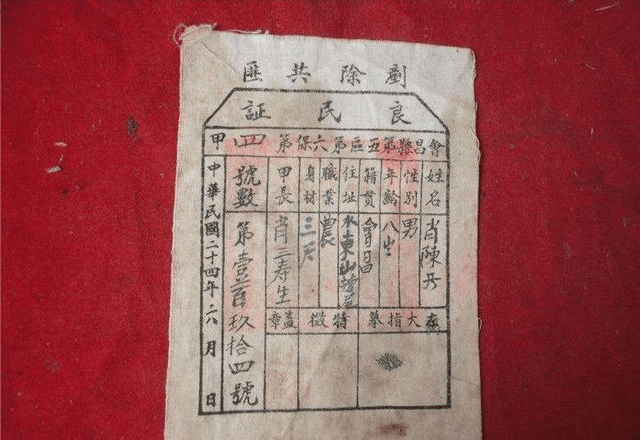 剷除共匪
良民証
會昌縣第五區第六保第四甲
姓名 肖陳
性別 男
年齡 八
籍貫 會昌
住址 水東山
職業 農
身材 三尺
甲長 肖三寿生
左大指摹
特徵
蓋章
號數 第壹百玖拾四號
中華民國二十四年六月 日